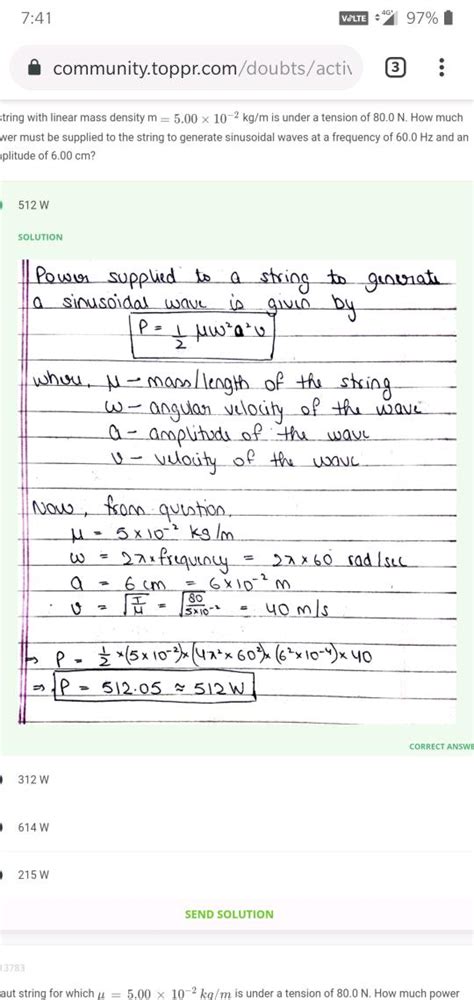 7:41
VoLTE 4G+ 97%
community.toppr.com/doubts/activ 3
string with linear mass density m = 5.00 × 10⁻² kg/m is under a tension of 80.0 N. How much
wer must be supplied to the string to generate sinusoidal waves at a frequency of 60.0 Hz and an
plitude of 6.00 cm?
512 W
SOLUTION
Power supplied to a string to generate
a sinusoidal wave is given by
P = 1/2 μω²a²v
where, μ – mass/length of the string
ω – angular velocity of the wave
a – amplitude of the wave
v – velocity of the wave
Now, from question,
μ = 5×10⁻² kg/m
ω = 2π×frequency = 2π×60 rad/sec
a = 6 cm = 6×10⁻² m
v = √(T/μ) = √(80/5×10⁻²) = 40 m/s
⇒ P = 1/2 ×(5×10⁻²)×(4π²×60²)×(6²×10⁻⁴)×40
⇒ P = 512.05 ≈ 512W
CORRECT ANSWE
312 W
614 W
215 W
SEND SOLUTION
3783
aut string for which μ = 5.00 × 10⁻² kg/m is under a tension of 80.0 N. How much power